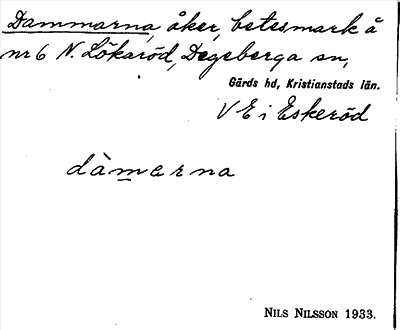 Dammarna, åker, betesmark å
nr 6 N. Lökaröd, Degeberga sn,
Gärds hd, Kristianstads län.
V E i Eskeröd
dàmarna
NILS NILSSON 1933.